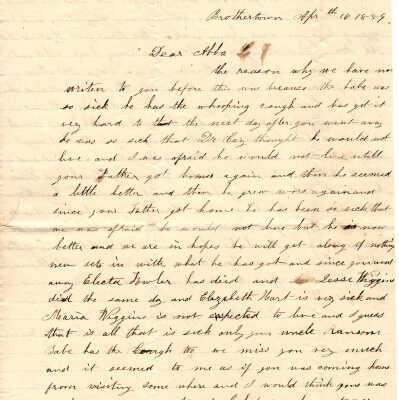 Brothertown Apr th 16 18-89
Dear Abba
the reason why we have not
writen to you before this was because the babe was
so sick he has the whooping cough and has got it
very hard to that the next day after you went away
he was so sick that Dr Cay thought he would not
live and I was afraid he would not live untill
your Father got home again and then he seemed
a little better and then he grew wors again and
since your Father got home he has been so sick that
we was afraid he would not live but he is now
better and we are in hopes he will get along if nothing
new sets in with what he has got and since you went
away Electa Fowler has died and Jesse Wiggins
died the same day and Elizabeth Hart is very sick and
Maria Wiggins is not expected to live and I guess
that is all that is sick only your uncle ransom
babe has the Cough to we miss you very much
and it seemed to me as if you was coming home
from visiting some where and I would think you was